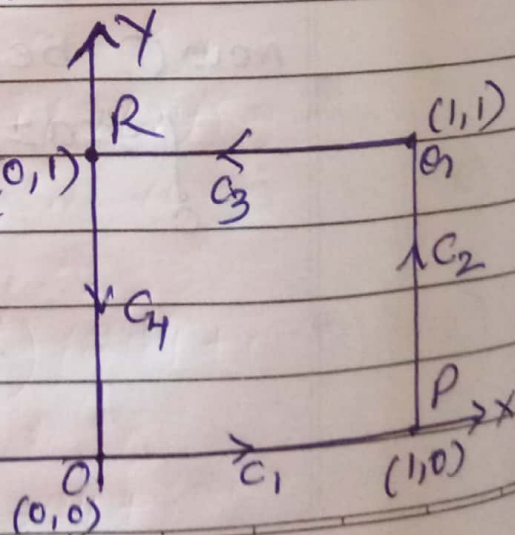 Y
R
(1,1)
0,1)
Q
C3
C2
C4
P
X
O
C1
(1,0)
(0,0)